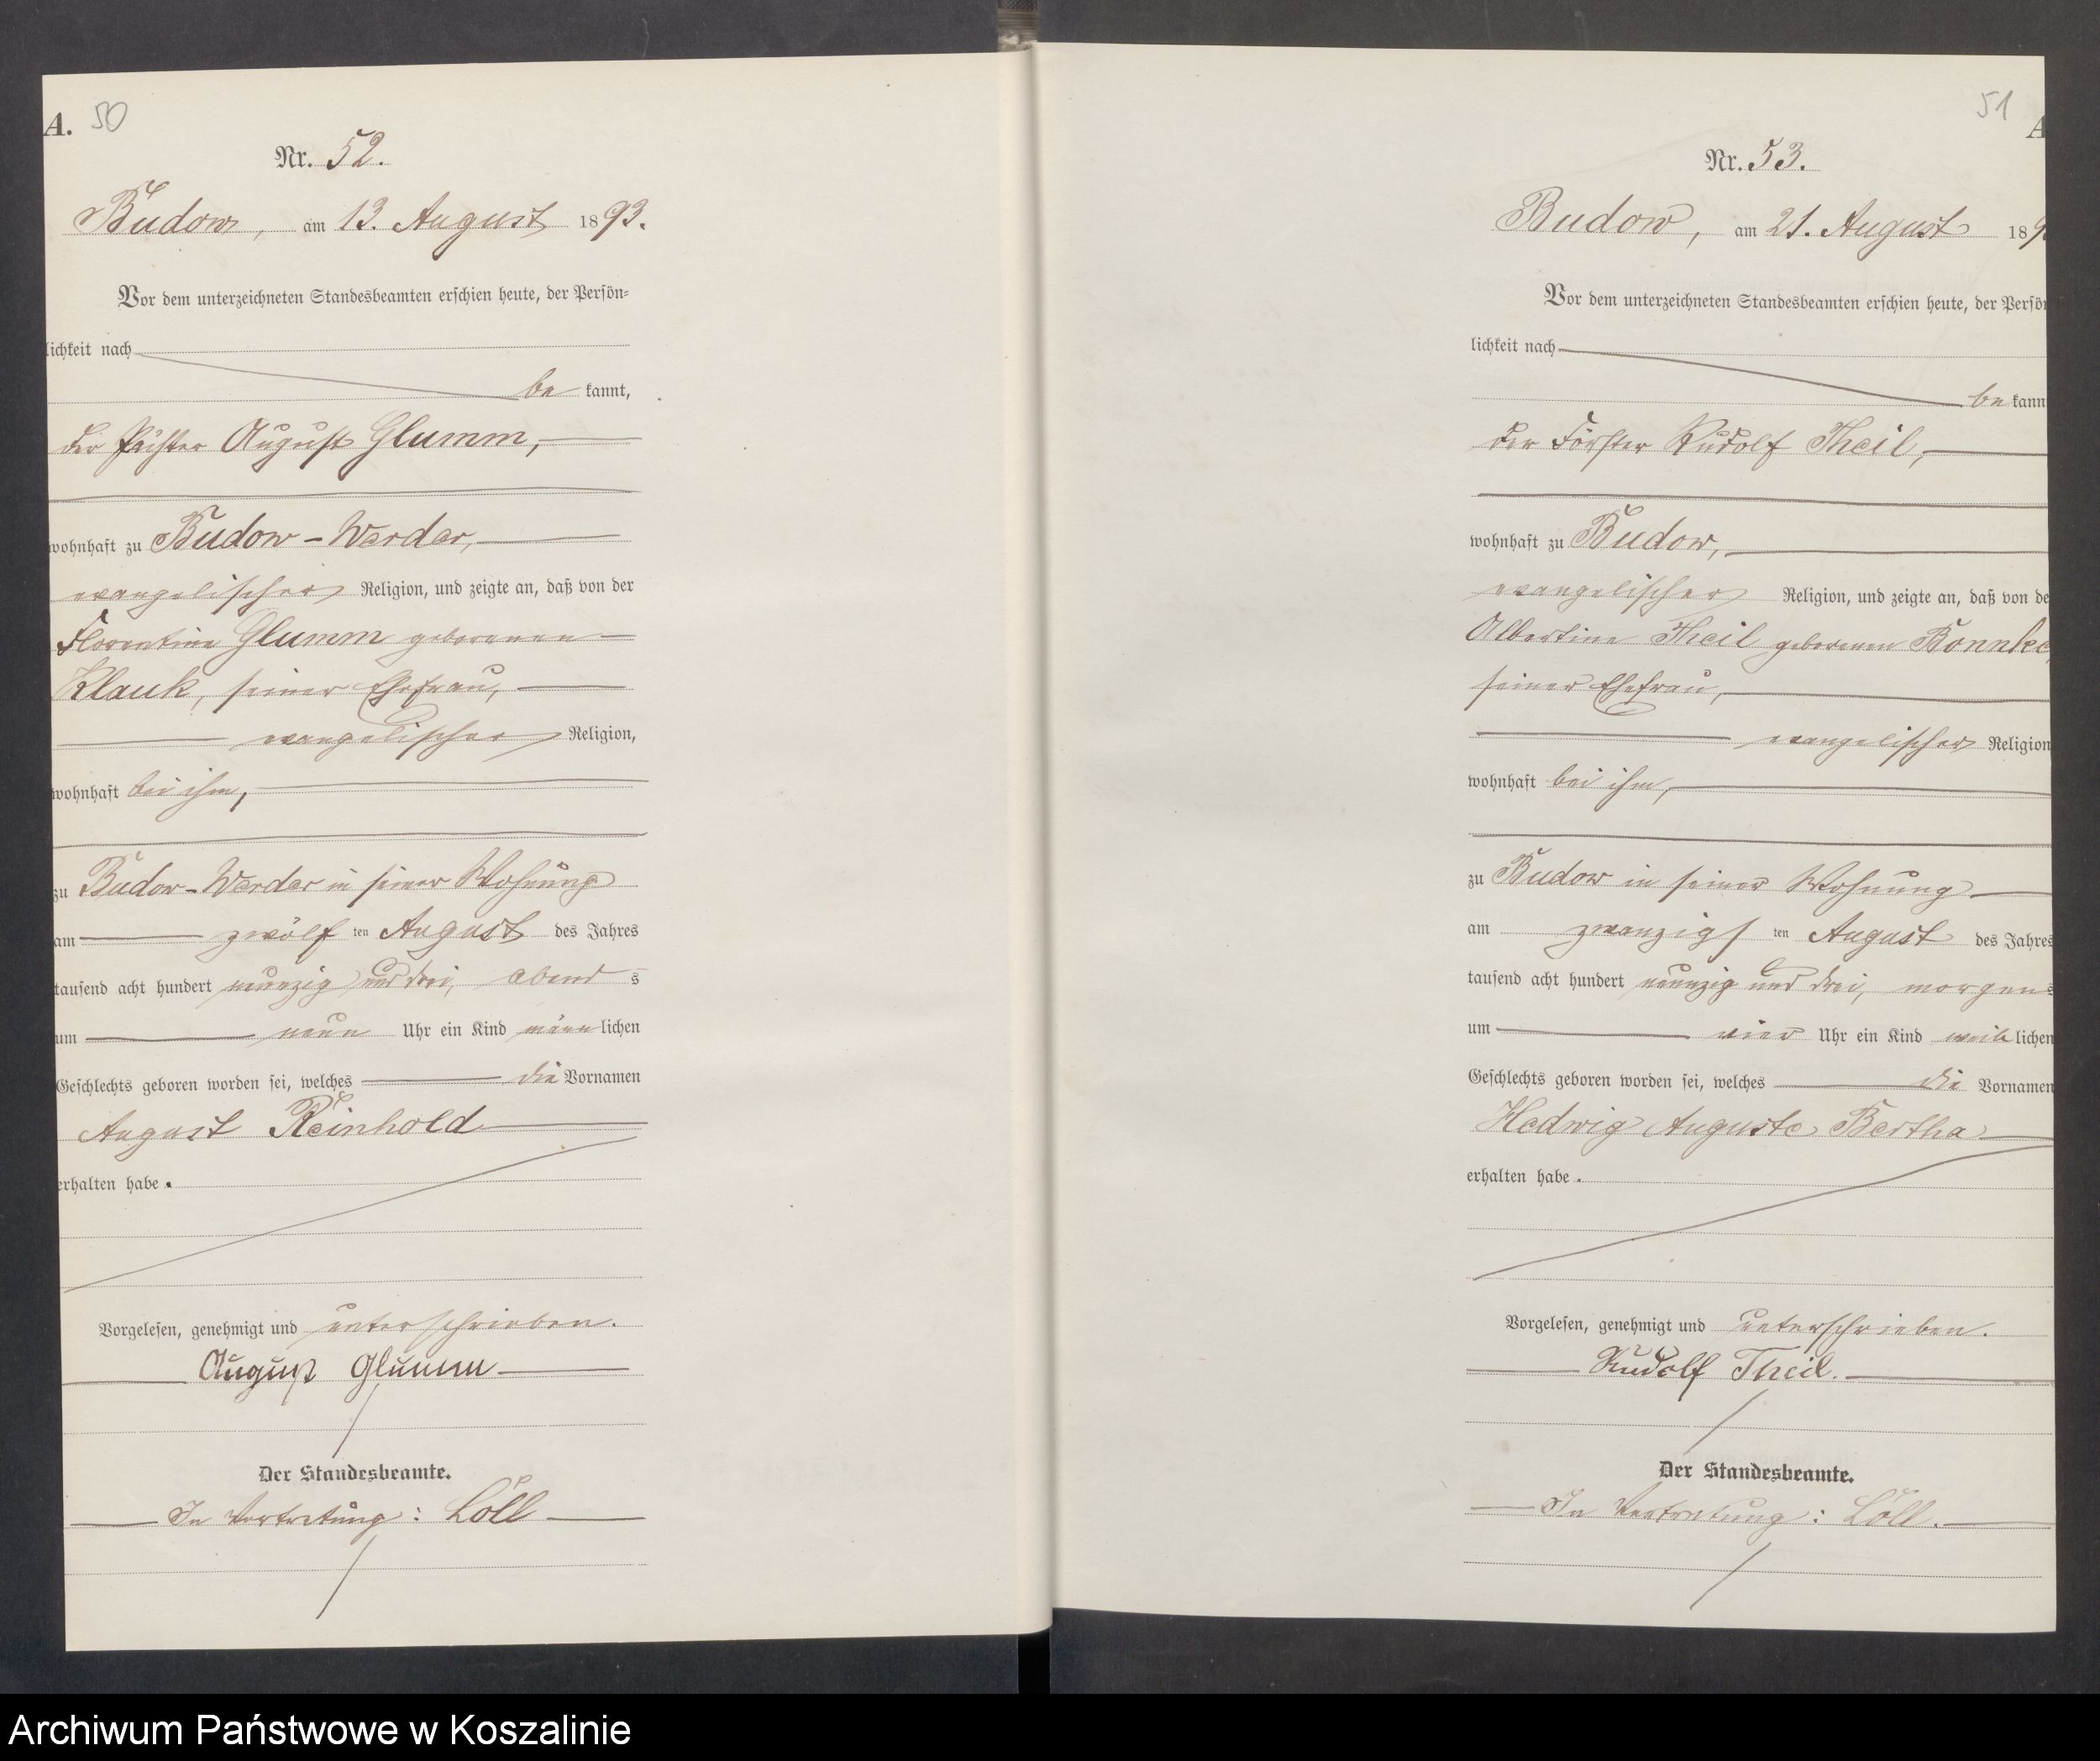 A. 50
Nr. 52.
Budow, am 13. August 1893.
Vor dem unterzeichneten Standesbeamten erschien heute, der Persön=
lichkeit nach
be kannt,
der Pächter August Glumm,
wohnhaft zu Budow-Werder,
evangelischer Religion, und zeigte an, daß von der
Florentine Glumm geborenen
Klauk, seiner Ehefrau,
evangelischer Religion,
wohnhaft bei ihm,
zu Budow-Werder in seiner Wohnung
am zwölf ten August des Jahres
tausend acht hundert neunzig und drei, abend s
um neun Uhr ein Kind männ lichen
Geschlechts geboren worden sei, welches die Vornamen
August Reinhold
erhalten habe.
Vorgelesen, genehmigt und unterschrieben.
August Glumm
Der Standesbeamte.
In Vertretung: Löll
51
A
Nr. 53.
Budow, am 21. August 189
Vor dem unterzeichneten Standesbeamten erschien heute, der Persön
lichkeit nach
be kann
der Förster Rudolf Theil,
wohnhaft zu Budow,
evangelischer Religion, und zeigte an, daß von de
Albertine Theil geborenen Bonnke,
seiner Ehefrau,
evangelischer Religion
wohnhaft bei ihm,
zu Budow in seiner Wohnung
am zwanzigs ten August des Jahres
tausend acht hundert neunzig und drei, morgen s
um vier Uhr ein Kind weib lichen
Geschlechts geboren worden sei, welches die Vornamen
Hedwig Auguste Bertha
erhalten habe.
Vorgelesen, genehmigt und unterschrieben.
Rudolf Theil.
Der Standesbeamte.
In Vertretung: Löll.
Archiwum Państwowe w Koszalinie